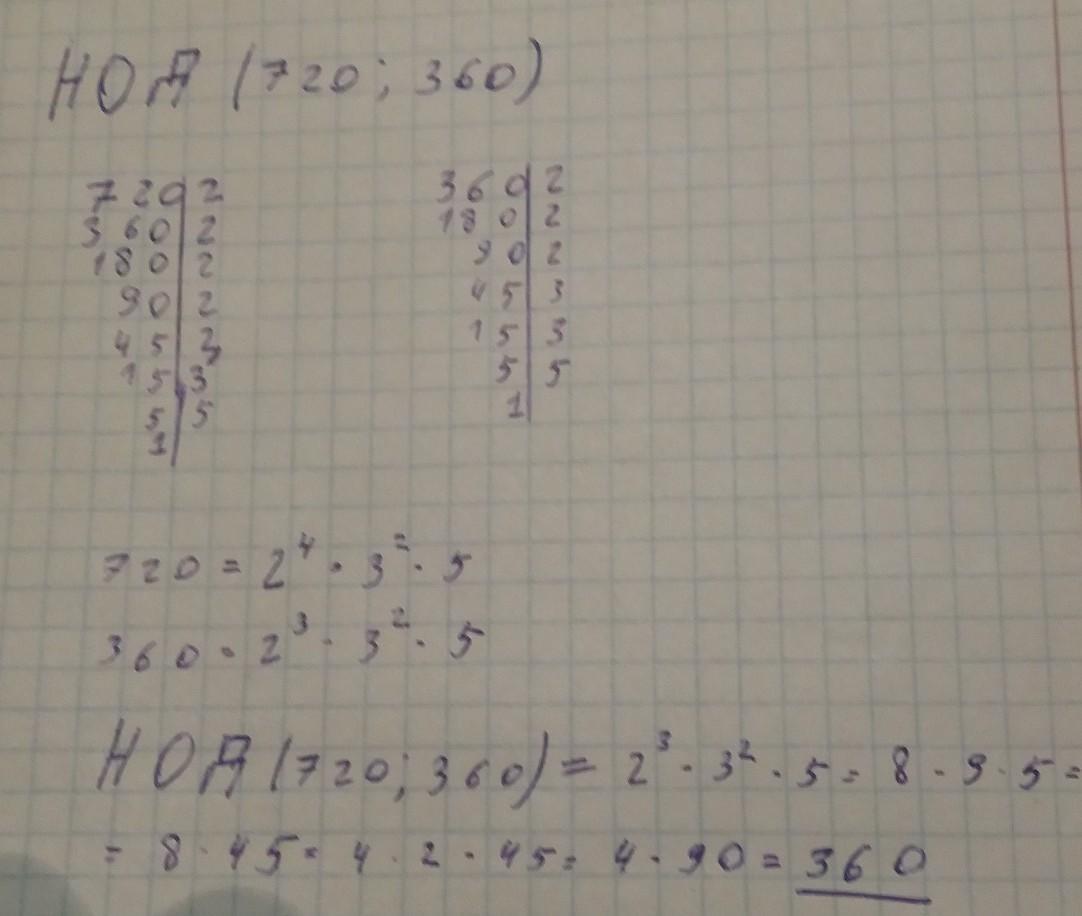 НОД (720; 360)
720 2
360 2
180 2
90 2
45 3
15 3
5 5
1
360 2
180 2
90 2
45 3
15 3
5 5
1
720 = 2⁴ · 3² · 5
360 = 2³ · 3² · 5
НОД (720; 360) = 2³ · 3² · 5 = 8 · 9 · 5 =
= 8 · 45 = 4 · 2 · 45 = 4 · 90 = 360